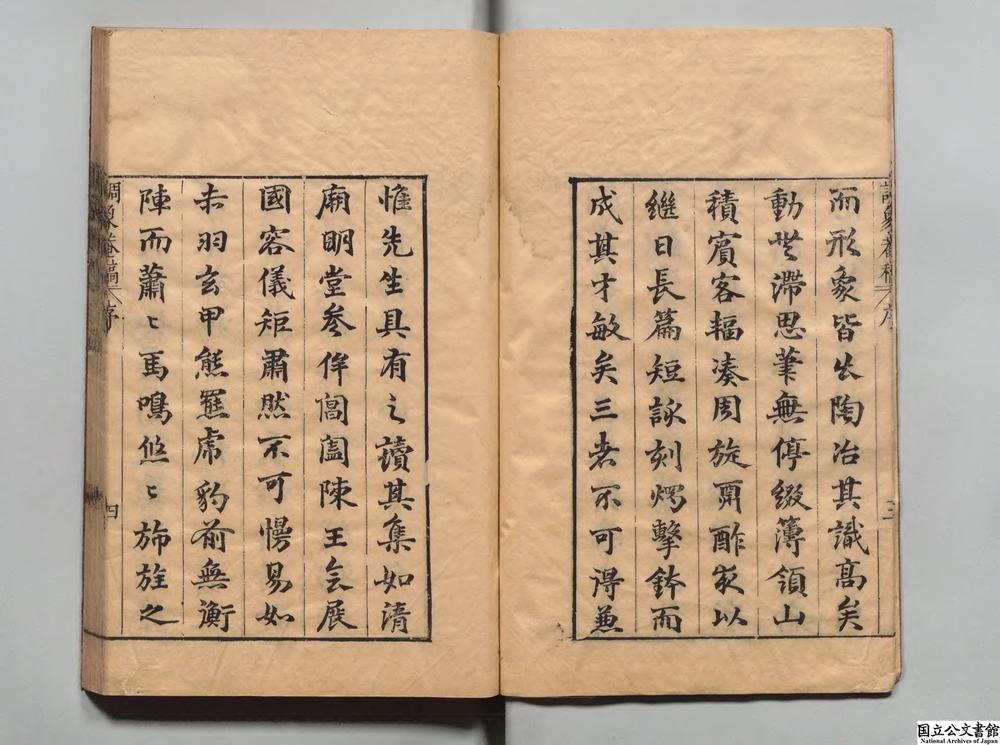 調象菴稿 序 三
而形象皆出陶冶其識高矣
動無滯思筆無停綴簿領山
積賓客輻湊周旋酢夜以
繼日長篇短詠刻燭擊鉢而
成其才敏矣三者不可得兼
惟先生具有之讀其集如清
廟明堂參侔閶闔陳王会展
國容儀矩肅然不可慢易如
赤羽玄甲熊羆虎豹前無衡
陣而蕭〻馬鳴悠〻旆旌之
調象菴稿 序 四
国立公文書館
National Archives of Japan